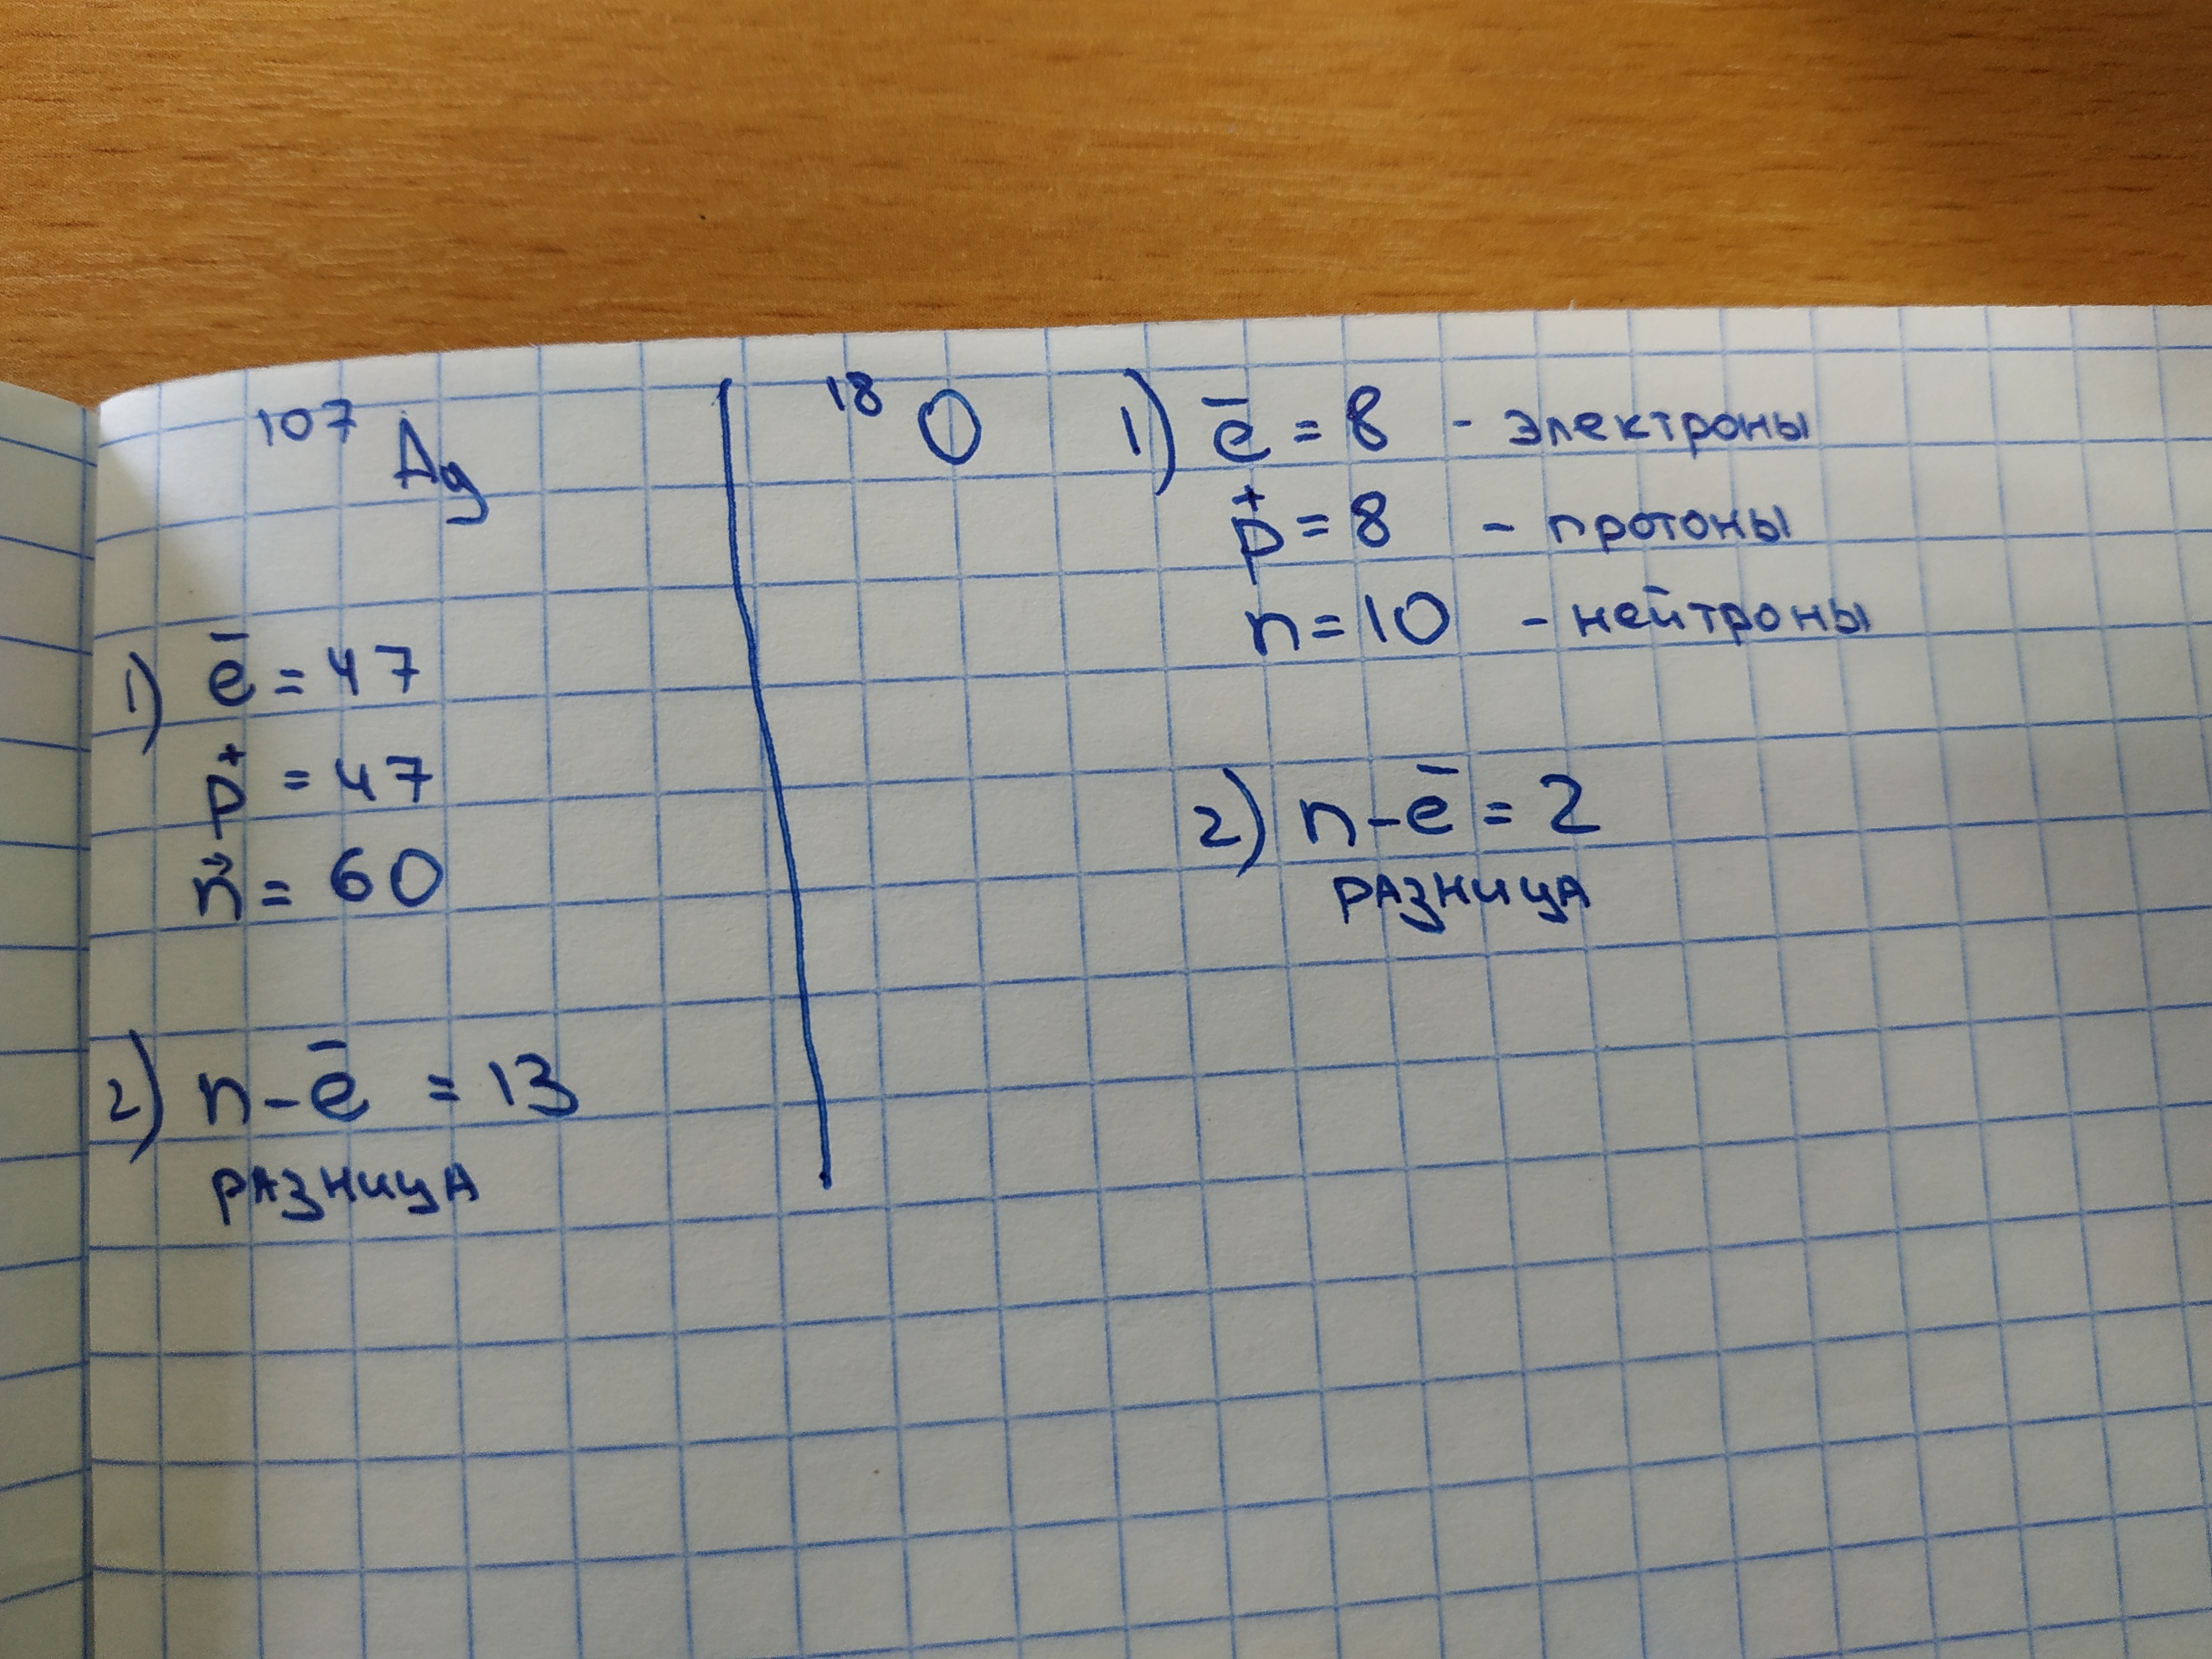 ¹⁰⁷Ag
1) e̅ = 47
p⁺ = 47
n = 60
2) n - e̅ = 13
РАЗНИЦА
¹⁸O 1) e̅ = 8 - электроны
p⁺ = 8 - протоны
n = 10 - нейтроны
2) n - e̅ = 2
РАЗНИЦА